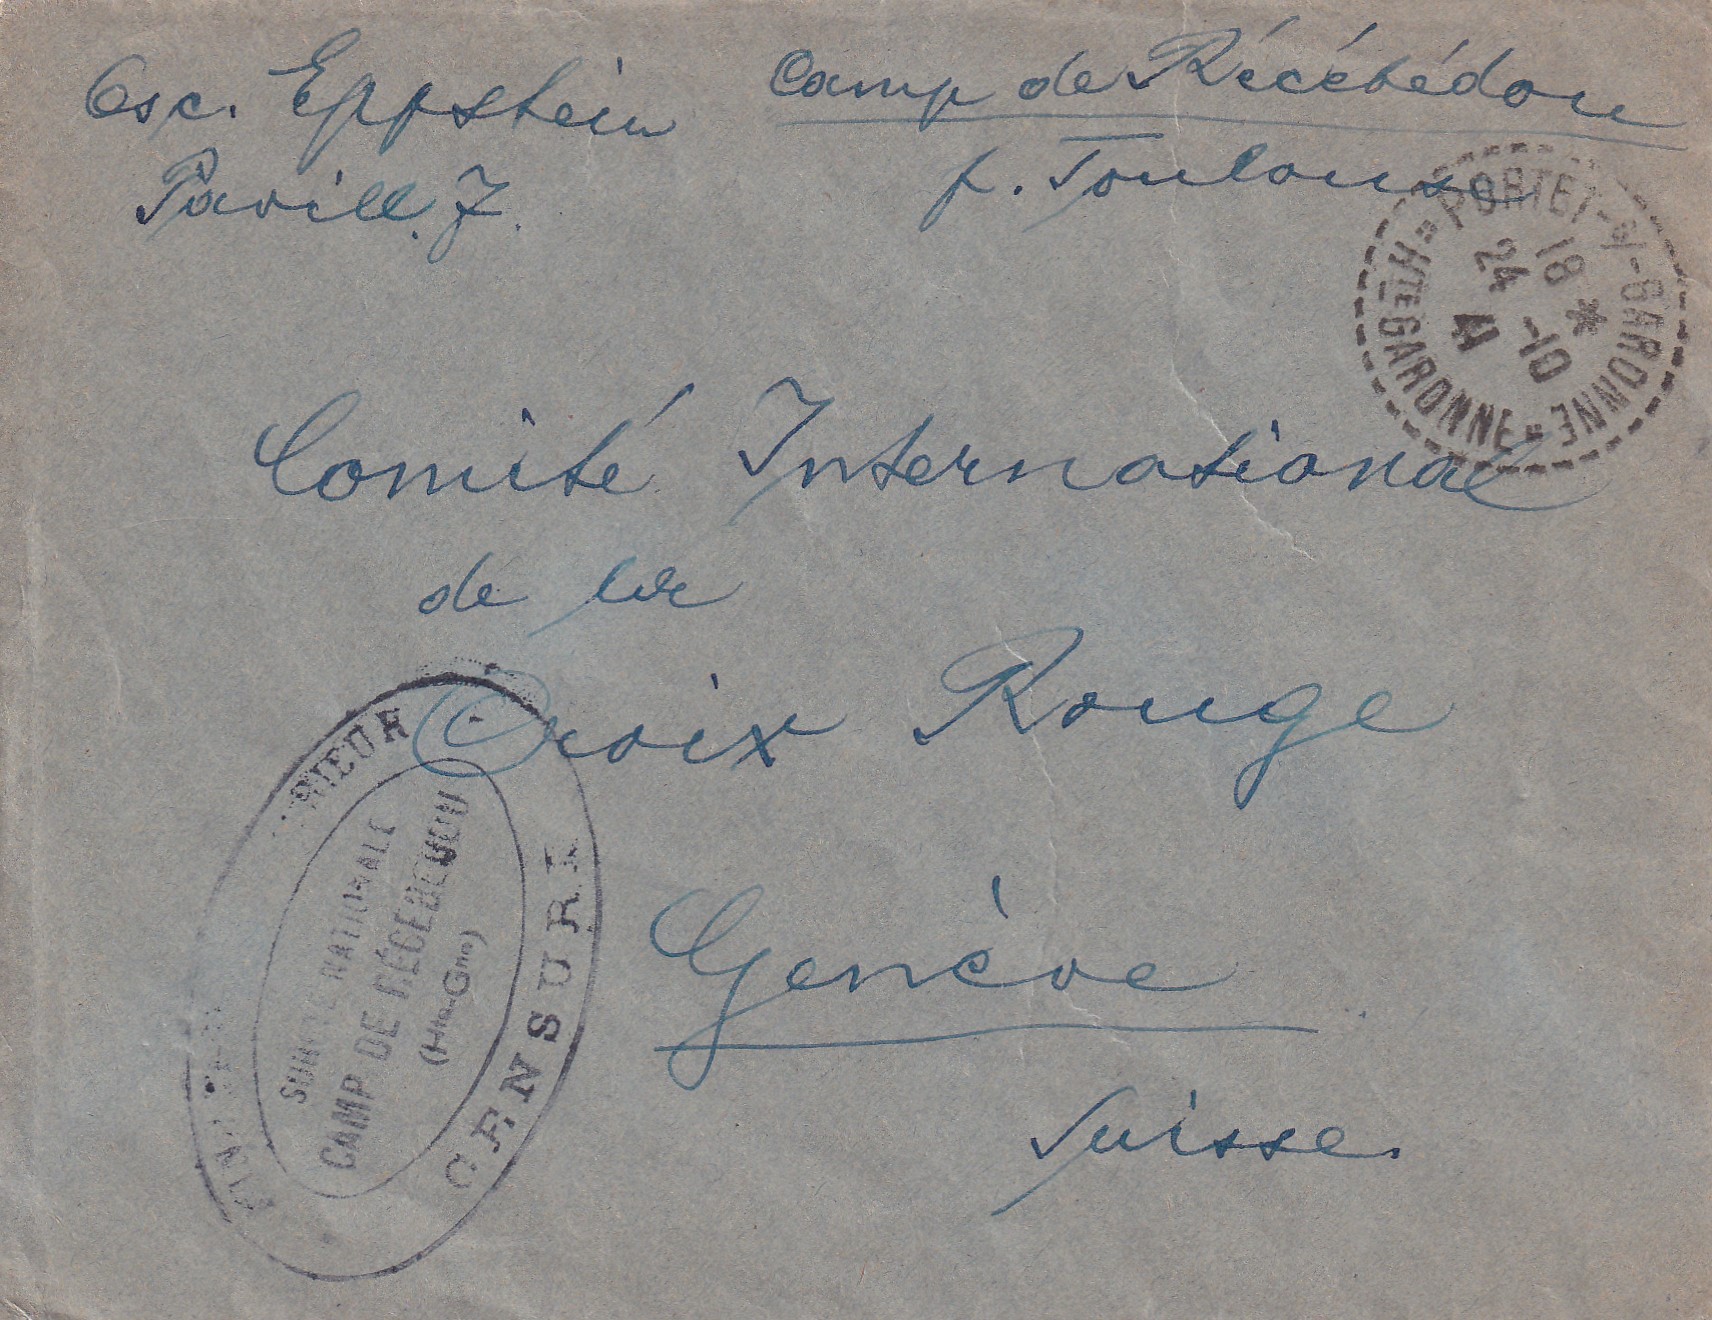 Osc. Eppstein
Pavill. 7.
Camp de Récébédou
p. Toulouse
PORTET-S/-GARONNE
18 *
24 -10
41
HTE GARONNE
Comité International
de la
Croix Rouge
Genève
Suisse.
CENSURE
NATIONALE
CAMP DE RÉCÉBÉDOU
(Hte-Gne)